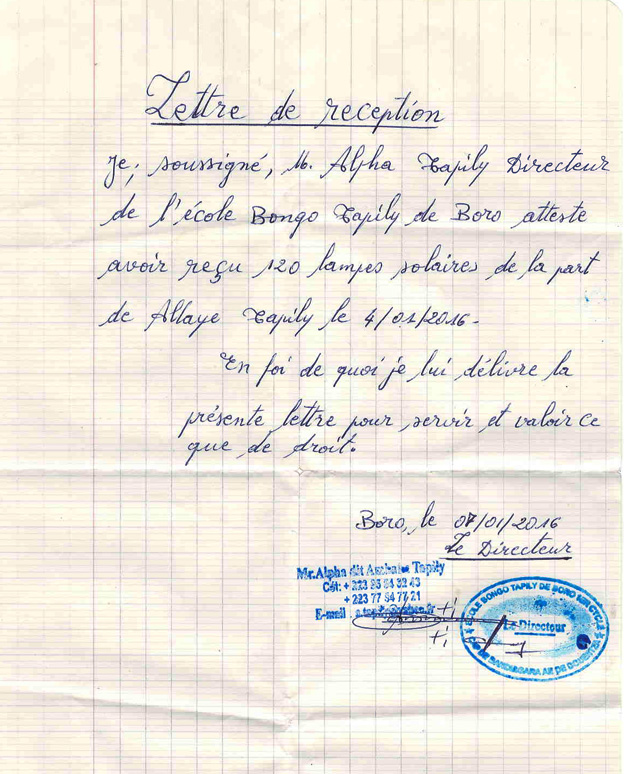 Lettre de reception
Je, soussigné, M. Alpha Tapily Directeur
de l'école Bongo Tapily de Boro atteste
avoir reçu 120 lampes solaires de la part
de Allaye Tapily le 4/01/2016.
En foi de quoi je lui délivre la
présente lettre pour servir et valoir ce
que de droit.
Boro, le 07/01/2016
Le Directeur
Mr. Alpha dit Tapily
Cél: + 223
+ 223 77 54 77 21
E-mail :
ECOLE BONGO TAPILY DE BORO 1ER CYCLE
Le Directeur
CAP DE BANDIAGARA AE DE DOUENTZA